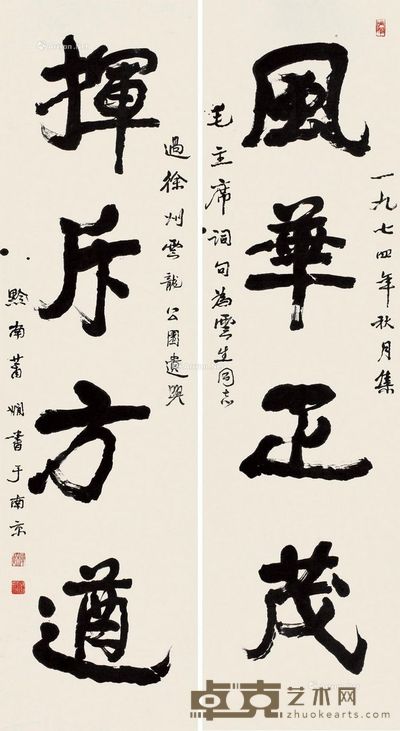 風華正茂
一九七四年秋月集
毛主席詞句為雲生同志
揮斥方遒
過徐州雲龍公園遺興
黔南蕭嫻書于南京
卓克艺术网
www.zhuokearts.com